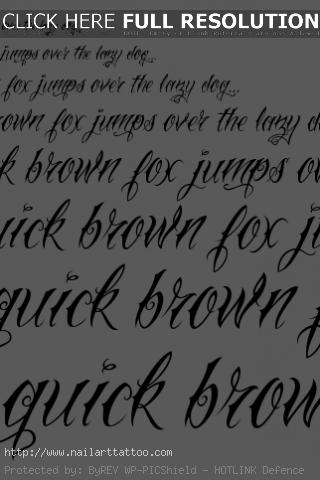 CLICK HERE FULL RESOLUTION
jumps over the lazy dog...
fox jumps over the lazy dog...
rown fox jumps over the lazy do
k brown fox jumps ov
uick brown fox ju
quick brown f
quick brow
http://www.nailarttattoo.com
Protected by: ByREV WP-PICShield - HOTLINK Defence